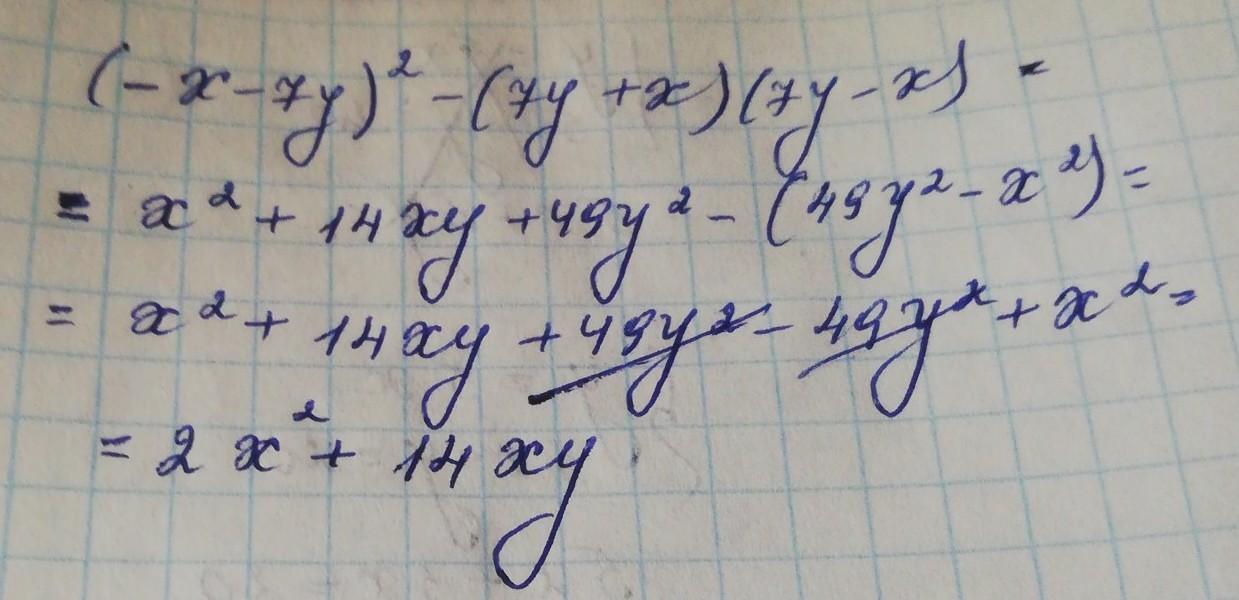 (-x-7y)² - (7y+x)(7y-x) =
= x² + 14xy + 49y² - (49y² - x²) =
= x² + 14xy + 49y² - 49y² + x² =
= 2x² + 14xy